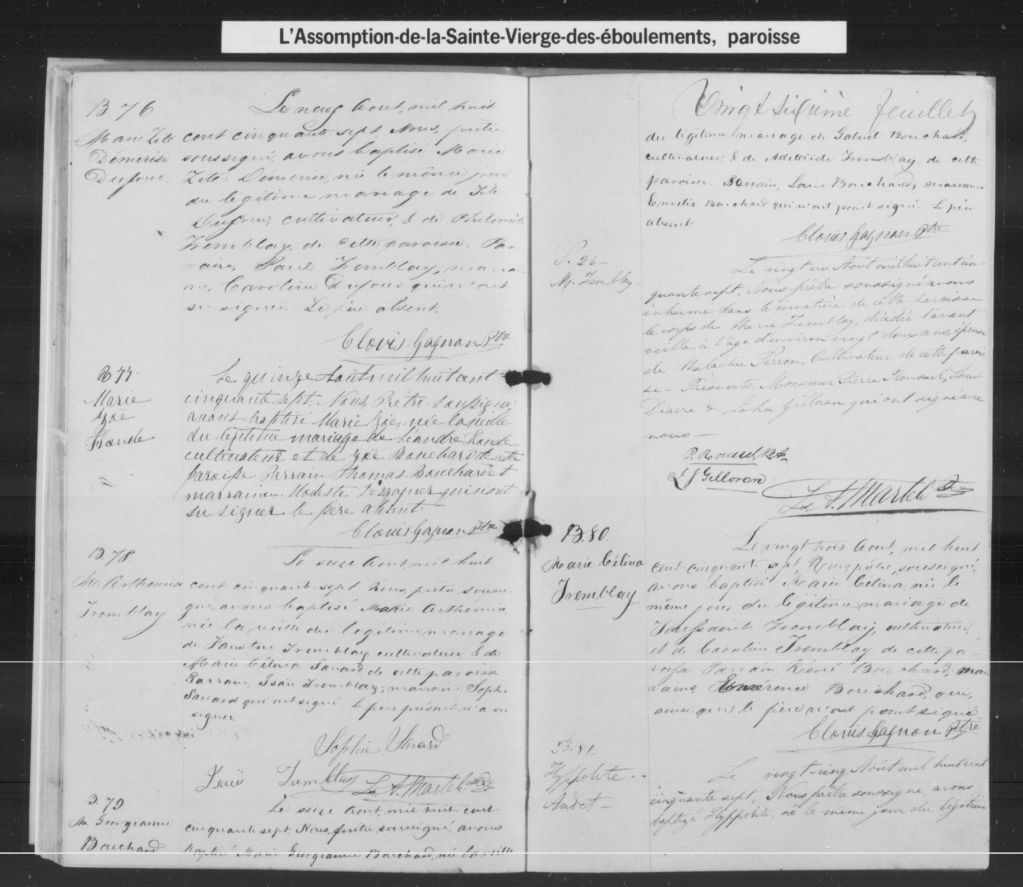 L'Assomption-de-la-Sainte-Vierge-des-éboulements, paroisse
B 76
Marie Zite
Démerise
Dufour
Le neuf Aout, mil huit
cent cinquante sept, Nous, prêtre
soussigné, avons baptisé Marie
Zite Démerise, née le même jour
du légitime mariage de Zite
Dufour, cultivateur, & de Philomène
Tremblay, de cette paroisse. Par-
rain, Paul Tremblay; marrai-
ne, Caroline Dufour qui n'ont
su signer. Le père absent.
Clovis Gagnon Ptre
B 77.
Marie
Zoé
Le quinze Aout mil huit cent
cinquante sept, Nous Prêtre soussigné
avons baptisé Marie Zoé, née la veille
du légitime mariage de Léandre
cultivateur et de Zoé Bouchard de cette
paroisse Parrain Thomas Bouchard et
marraine Modeste qui n'ont
su signer le père absent.
Clovis Gagnon Ptre
B 78.
Me Arthémise
Tremblay
Le seize Aout, mil huit
cent cinquante sept Nous prêtre soussi-
gné, avons baptisé Marie Arthémise
née la veille du légitime mariage
de Faustin Tremblay cultivateur & de
Marie Célina Savard de cette paroisse
Parrain, Isaïe Tremblay; marraine Sophie
Savard qui ont signé. Le père présent n'a su
signer.
Sophie Savard
Tremblay L. A. Martel Ptre
B. 79
Me Georgianne
Bouchard
Le seize Aout, mil huit cent
cinquante sept, Nous, prêtre soussigné, avons
baptisé Marie Georgianne Bouchard, née la veille
Vingt sixième feuillet
du légitime mariage de Gabriel Bouchard,
cultivateur, & de Adélaïde Tremblay de cette
paroisse. Parrain, Louis Bouchard, marraine
Emélie Bouchard qui n'ont point signé. Le père
absent.
Clovis Gagnon Ptre
S. 26 -
M. Tremblay -
Le vingt un Août mil huit cent cin-
quante sept, Nous prêtre soussigné avons
inhumé dans le cimetière de cette paroisse
le corps de Marie Tremblay, décédée l'avant
veille à l'âge d'environ vingt deux ans, épouse
de Malachie Perron, cultivateur de cette parois-
se - Présents, Monsieur Pierre Roussel, Sous
Diacre & John Gilloran qui ont signé avec
nous -
P. Roussel
J Gilloran
L. A. Martel Ptre
B. 80
Marie Célina
Tremblay
Le vingt trois Aout, mil huit
cent cinquante sept, Nous prêtre, soussigné,
avons baptisé Marie Célina, née le
même jour du légitime mariage de
Toussaint Tremblay, cultivateur,
et de Caroline Tremblay de cette pa-
roisse Parrain Rémi Bouchard, mar-
raine Bouchard, qui,
ainsi que le père n'ont point signé
Clovis Gagnon Ptre
B. 81
Hyppolite -
Audet -
Le vingt-cinq Août mil huit cent
cinquante sept, Nous prêtre soussigné, avons
baptizé Hyppolite, né le même jour du légitime